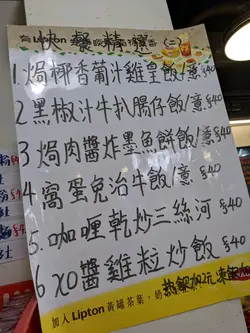 Lipton 快餐精選 (二)
1. 焗椰香葡汁雞皇飯/意 $40
2 黑椒汁牛扒腸仔飯/意 $40
3 焗肉醬炸墨魚餅飯/意 $40
4 窩蛋免治牛飯/意 $40
5. 咖喱乾炒三絲河 $40
6 XO醬雞粒炒飯 $40
加入Lipton黃罐茶葉,奶
熱飲加2元 凍飲